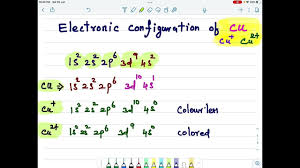 Electronic configuration of Cu
Cu⁺ Cu²⁺
1s² 2s² 2p⁶ 3d⁹ 4s²
Cu → 1s² 2s² 2p⁶ 3d¹⁰ 4s¹
Cu⁺ 1s² 2s² 2p⁶ 3d¹⁰ 4s⁰ Colourless
Cu²⁺ 1s² 2s² 2p⁶ 3d⁹ 4s⁰ colored